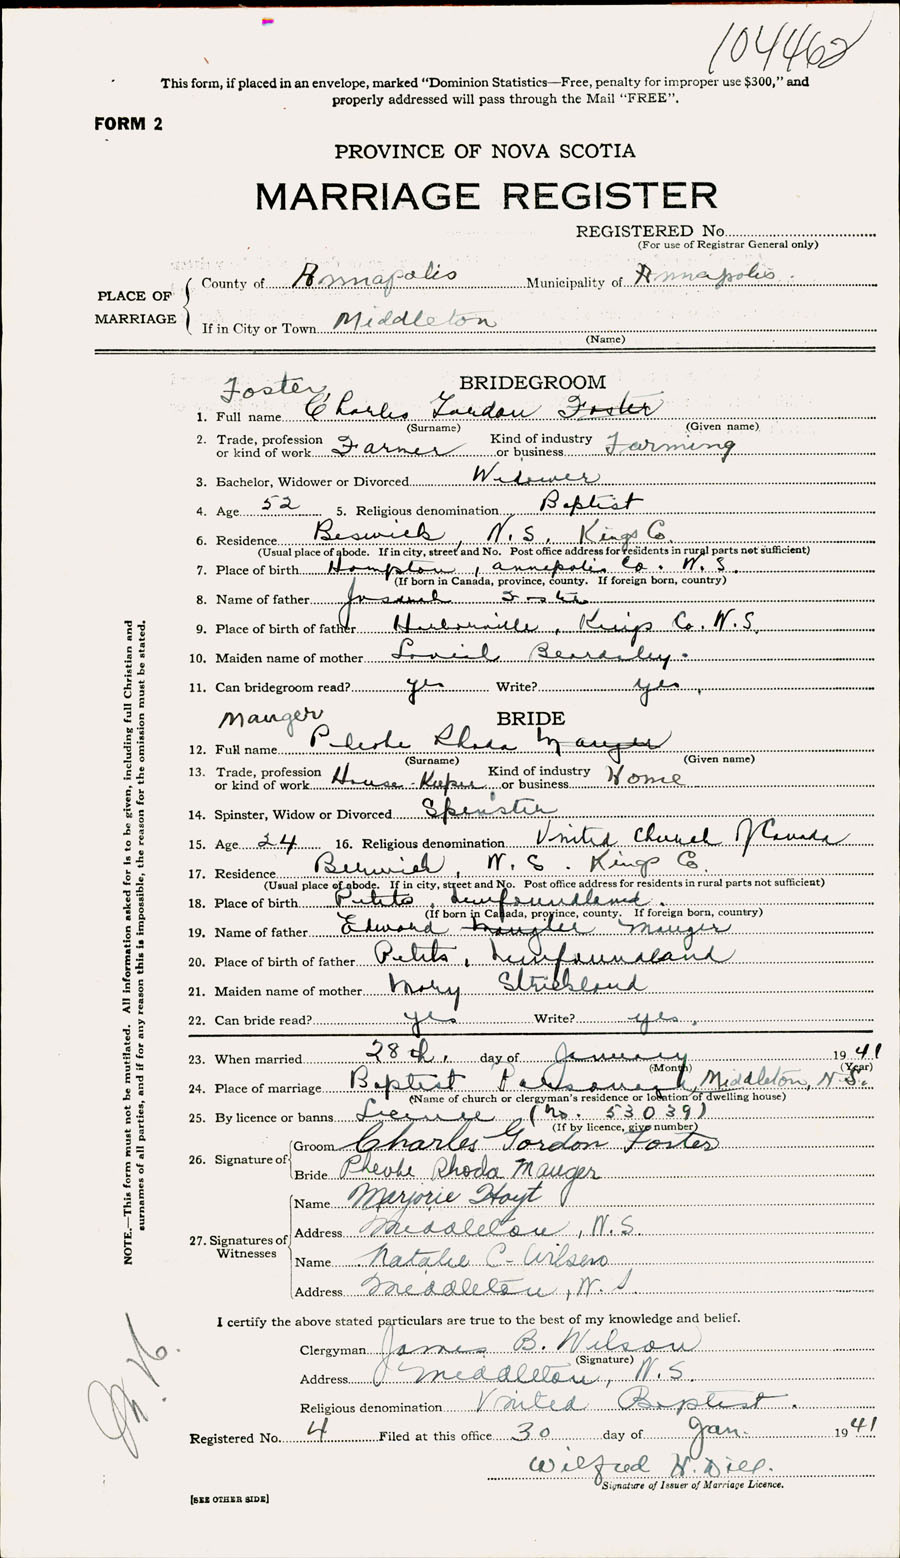 104462
This form, if placed in an envelope, marked “Dominion Statistics—Free, penalty for improper use $300,” and
properly addressed will pass through the Mail “FREE”.
FORM 2
PROVINCE OF NOVA SCOTIA
MARRIAGE REGISTER
REGISTERED No.
(For use of Registrar General only)
PLACE OF MARRIAGE
County of Annapolis Municipality of Annapolis.
If in City or Town Middleton
(Name)
BRIDEGROOM
Foster,
1. Full name Charles Gordon Foster
(Surname) (Given name)
2. Trade, profession or kind of work Farmer Kind of industry or business Farming
3. Bachelor, Widower or Divorced Widower
4. Age 52 5. Religious denomination Baptist
6. Residence Berwick, N.S. Kings Co.
(Usual place of abode. If in city, street and No. Post office address for residents in rural parts not sufficient)
7. Place of birth Hampton, Annapolis Co. N.S.
(If born in Canada, province, county. If foreign born, country)
8. Name of father Foster
9. Place of birth of father Harbourville, Kings Co. N.S.
10. Maiden name of mother Beardsley.
11. Can bridegroom read? yes Write? yes.
Mauger BRIDE
12. Full name Phebe Rhoda Mauger
(Surname) (Given name)
13. Trade, profession or kind of work House-Keeper Kind of industry or business Home
14. Spinster, Widow or Divorced Spinster
15. Age 24 16. Religious denomination United Church of Canada
17. Residence Berwick, N.S. Kings Co.
(Usual place of abode. If in city, street and No. Post office address for residents in rural parts not sufficient)
18. Place of birth Petits, Newfoundland.
(If born in Canada, province, county. If foreign born, country)
19. Name of father Edward Mauger
20. Place of birth of father Petits, Newfoundland
21. Maiden name of mother Mary Strickland
22. Can bride read? yes Write? yes.
23. When married 28th. day of January 1941
(Month) (Year)
24. Place of marriage Baptist Parsonage, Middleton, N.S.
(Name of church or clergyman's residence or location of dwelling house)
25. By licence or banns Licence (No. 53039)
(If by licence, give number)
26. Signature of
Groom Charles Gordon Foster
Bride Phebe Rhoda Mauger
27. Signatures of Witnesses
Name Marjorie Hoyt
Address Middleton, N.S.
Name Natalie C. Wilson
Address Middleton, N.S.
I certify the above stated particulars are true to the best of my knowledge and belief.
Clergyman James B. Wilson
(Signature)
Address Middleton, N.S.
Religious denomination United Baptist.
Registered No. 4 Filed at this office 30 day of Jan. 1941
Wilfred H. Dill.
Signature of Issuer of Marriage Licence.
[SEE OTHER SIDE]
NOTE.—This form must not be mutilated. All information asked for is to be given, including full Christian and
surnames of all parties, and if for any reason this is impossible, the reason for the omission must be stated.